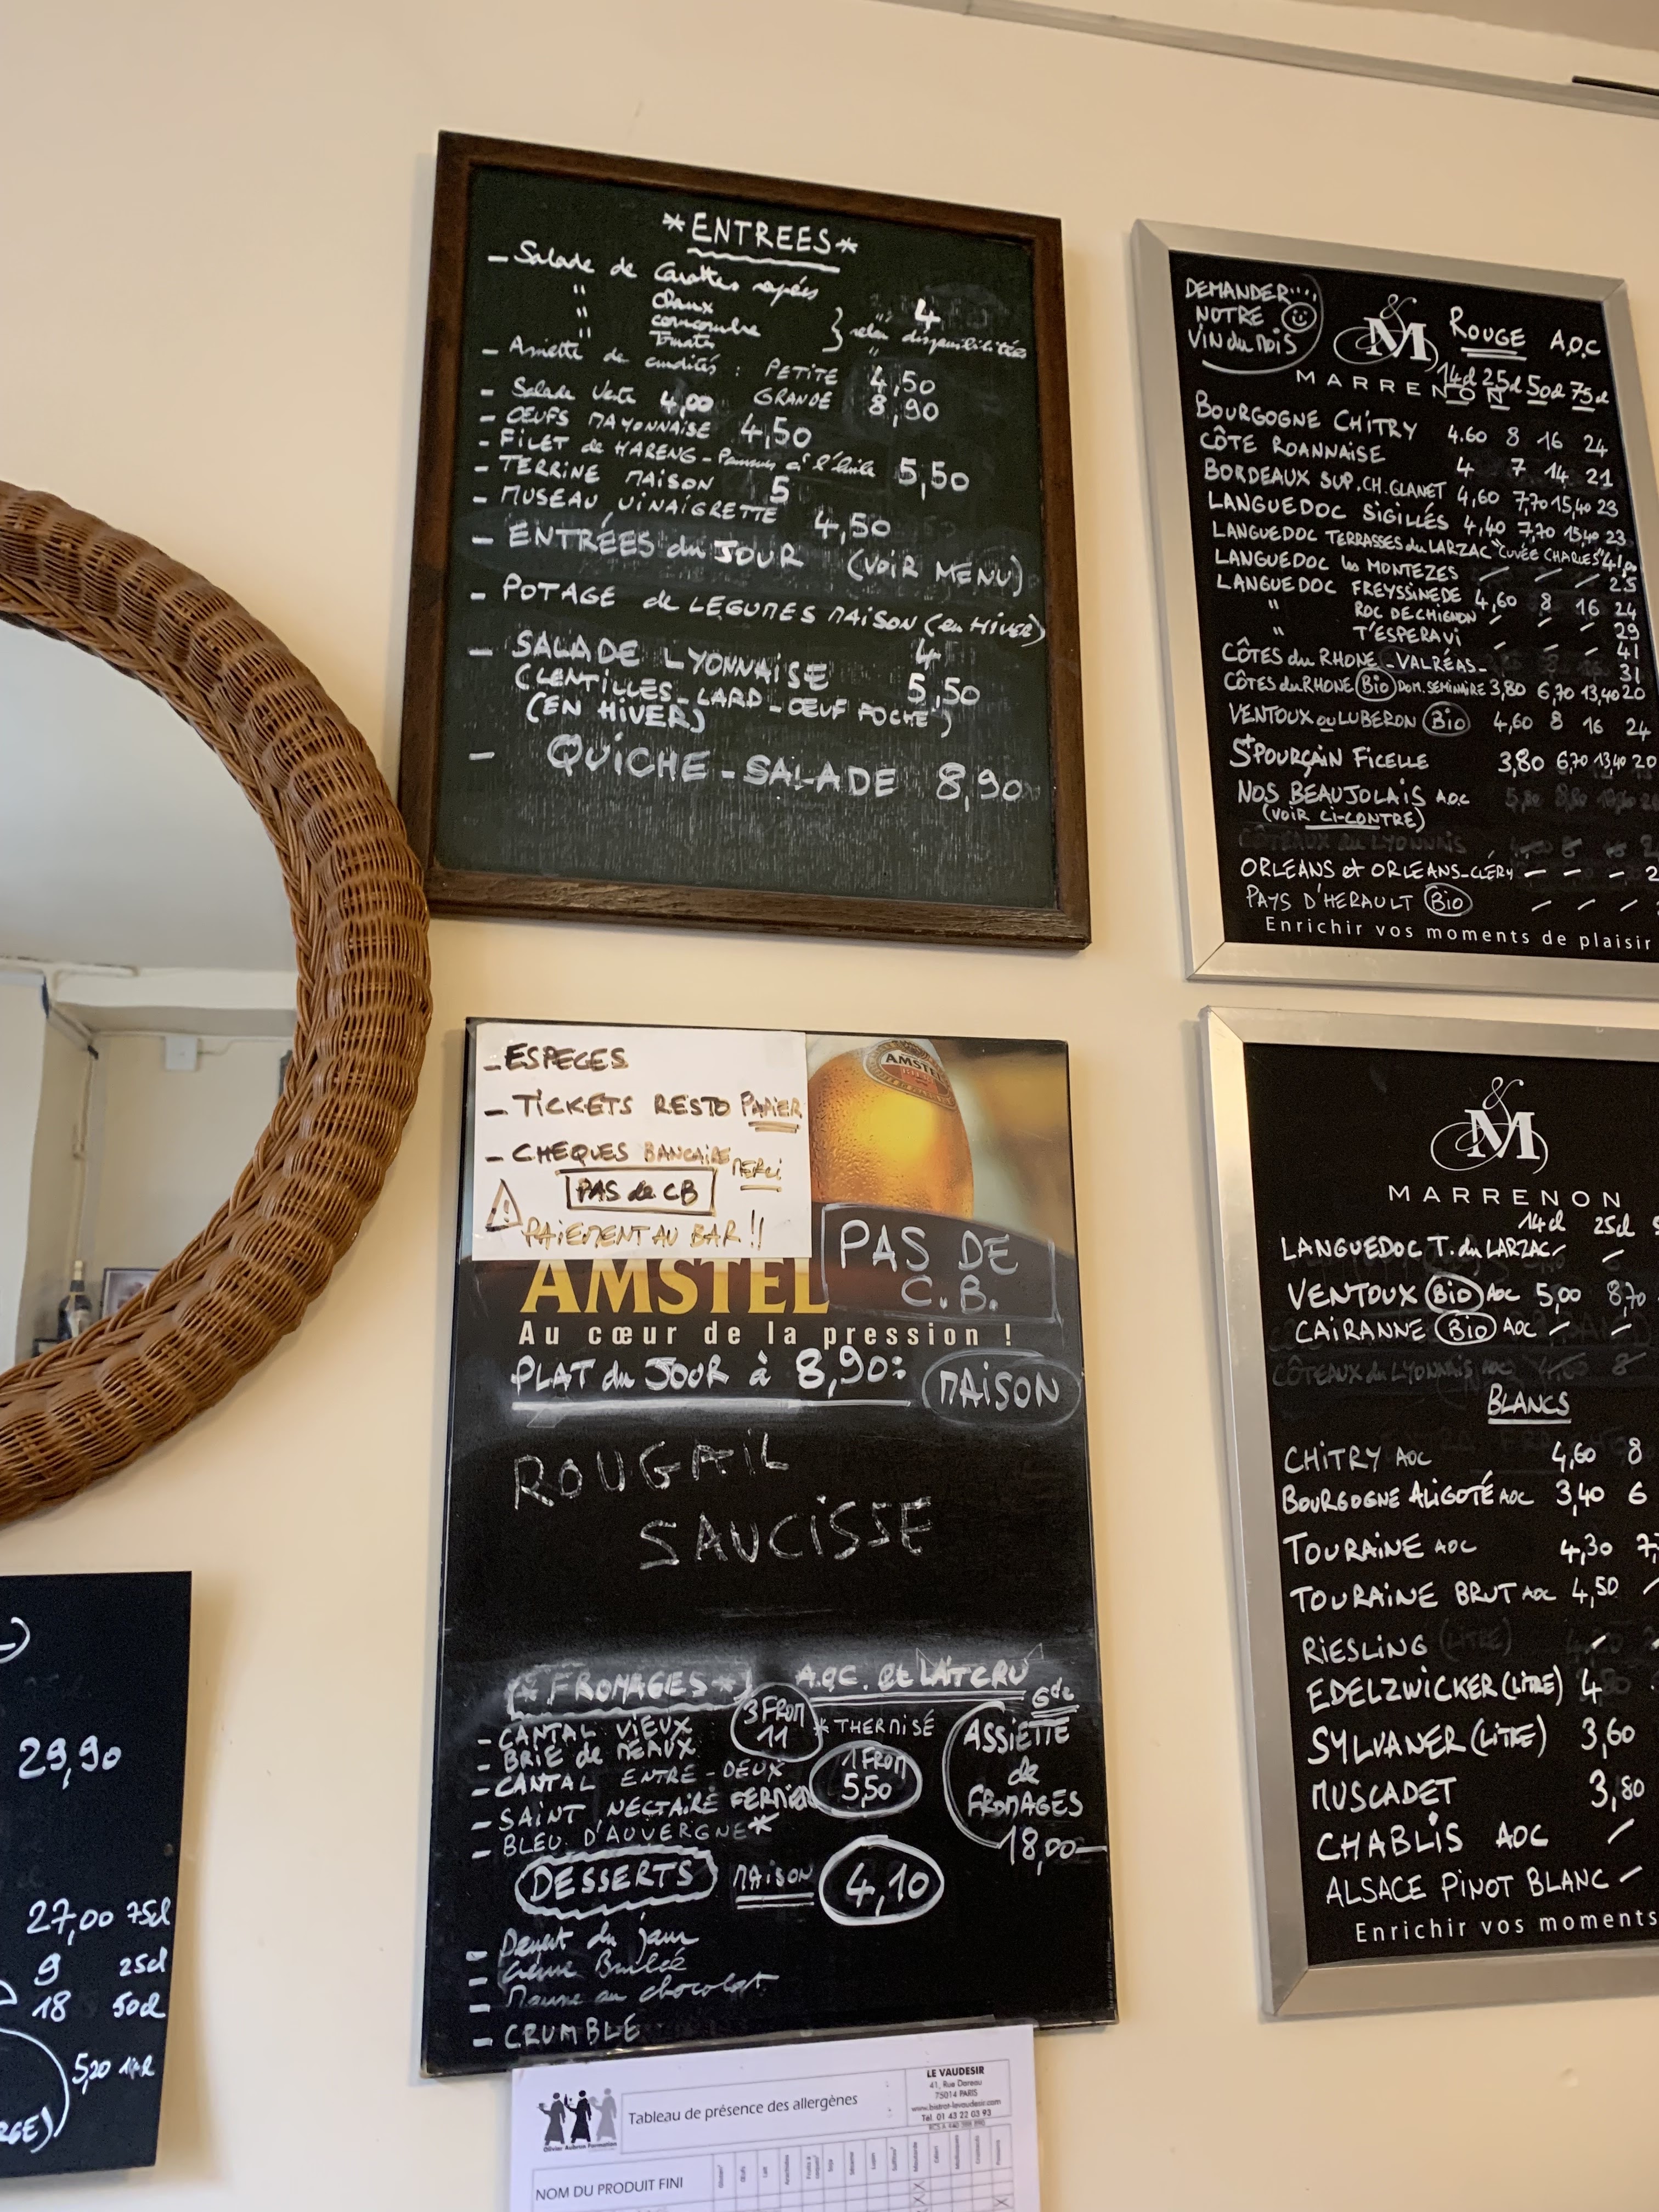 *ENTREES*
- Salade de Carottes rapées 4
" choux
" concombre } selon disponibilités
" Tomate "
- Assiette de crudités : PETITE 4,50
GRANDE 8,90
- Salade Verte 4,00
- ŒUFS MAYONNAISE 4,50
- FILET de HARENG - Pommes à l'huile 5,50
- TERRINE MAISON 5
- MUSEAU VINAIGRETTE 4,50
- ENTRÉES du JOUR (VOIR MENU)
- POTAGE de LEGUMES MAISON (en HIVER) 4
- SALADE LYONNAISE 5,50
(LENTILLES - LARD - OEUF POCHÉ)
(EN HIVER)
- QUICHE - SALADE 8,90
DEMANDER
NOTRE
VIN du MOIS
&
M
MARRENON
ROUGE A.O.C
14cl 25cl 50cl 75cl
BOURGOGNE CHITRY 4.60 8 16 24
CÔTE ROANNAISE 4 7 14 21
BORDEAUX SUP. CH. GLANET 4,60 7,70 15,40 23
LANGUEDOC SIGILLÉS 4,40 7,70 15,40 23
LANGUEDOC TERRASSES du LARZAC "CUVÉE CHARLES"
LANGUEDOC les MONTEZES / / / 25
LANGUEDOC FREYSSINEDE 4,60 8 16 24
" ROC DE CHIGNON / / / 29
" T'ESPERAVI / / / 41
CÔTES du RHONE - VALRÉAS - 31
CÔTES du RHONE Bio DOM. SEMINAIRE 3,80 6,70 13,40 20
VENTOUX ou LUBERON Bio 4,60 8 16 24
St POURÇAIN FICELLE 3,80 6,70 13,40 20
NOS BEAUJOLAIS AOC
(VOIR CI-CONTRE)
CÔTEAUX du LYONNAIS
ORLEANS et ORLEANS-CLÉRY - - - 2
PAYS D'HERAULT Bio / / /
Enrichir vos moments de plaisir
- ESPECES
- TICKETS RESTO PAPIER
- CHEQUES BANCAIRE MERCI
PAS de CB
! PAIEMENT AU BAR !!
AMSTEL
PAS DE
C.B.
AMSTEL
Au cœur de la pression !
PLAT du JOUR à 8,90: MAISON
ROUGAIL
SAUCISSE
* FROMAGES * A.O.C. et LAIT CRU
- CANTAL VIEUX
- BRIE de MEAUX
- CANTAL ENTRE-DEUX
- SAINT NECTAIRE FERMIER
- BLEU D'AUVERGNE *
3 FROM
11
* THERMISÉ
1 FROM
5,50
Gde
ASSIETTE
de
FROMAGES
18,00
DESSERTS MAISON 4,10
- Dessert du jour
- Crème Brulée
- Mousse au chocolat
- CRUMBLE
&
M
MARRENON
14cl 25cl
LANGUEDOC T. du LARZAC / /
VENTOUX Bio AOC 5,00 8,70
CAIRANNE Bio AOC / /
CÔTEAUX du LYONNAIS AOC 4,60 8
BLANCS
CHITRY AOC 4,60 8
BOURGOGNE ALIGOTÉ AOC 3,40 6
TOURAINE AOC 4,30 7,
TOURAINE BRUT AOC 4,50 /
RIESLING (LITRE) /
EDELZWICKER (LITRE) 4
SYLVANER (LITRE) 3,60
MUSCADET 3,80
CHABLIS AOC /
ALSACE PINOT BLANC /
Enrichir vos moments
29,90
27,00 75cl
9 25cl
18 50cl
5,20
Olivier Aubron Formation
Tableau de présence des allergènes
LE VAUDESIR
41, Rue Dareau
75014 PARIS
www.bistrot-levaudesir.com
Tél. 01 43 22 03 93
NOM DU PRODUIT FINI